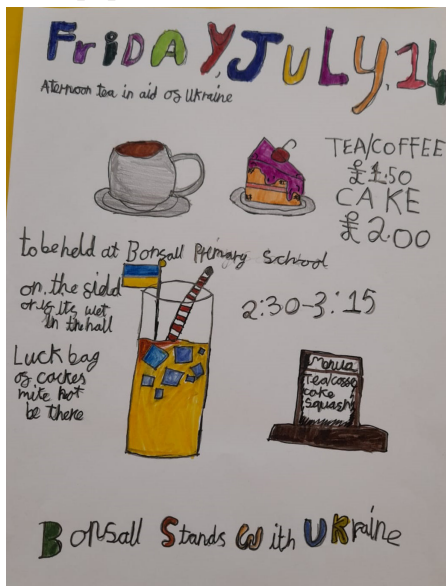 FRiDAY, JULY, 14
Aternoon tea in aid os Ukraine
TEA/COFFEE
£1.50
CAKE
£2.00
to be held at Bonsall Primary School
on, the sidd
or is its wet
in the hall
2:30-3:15
Luck bag
os cackes
mite not
be there
Menua
Tea/cosse
cake
Squash
Bonsall Stands With UKraine